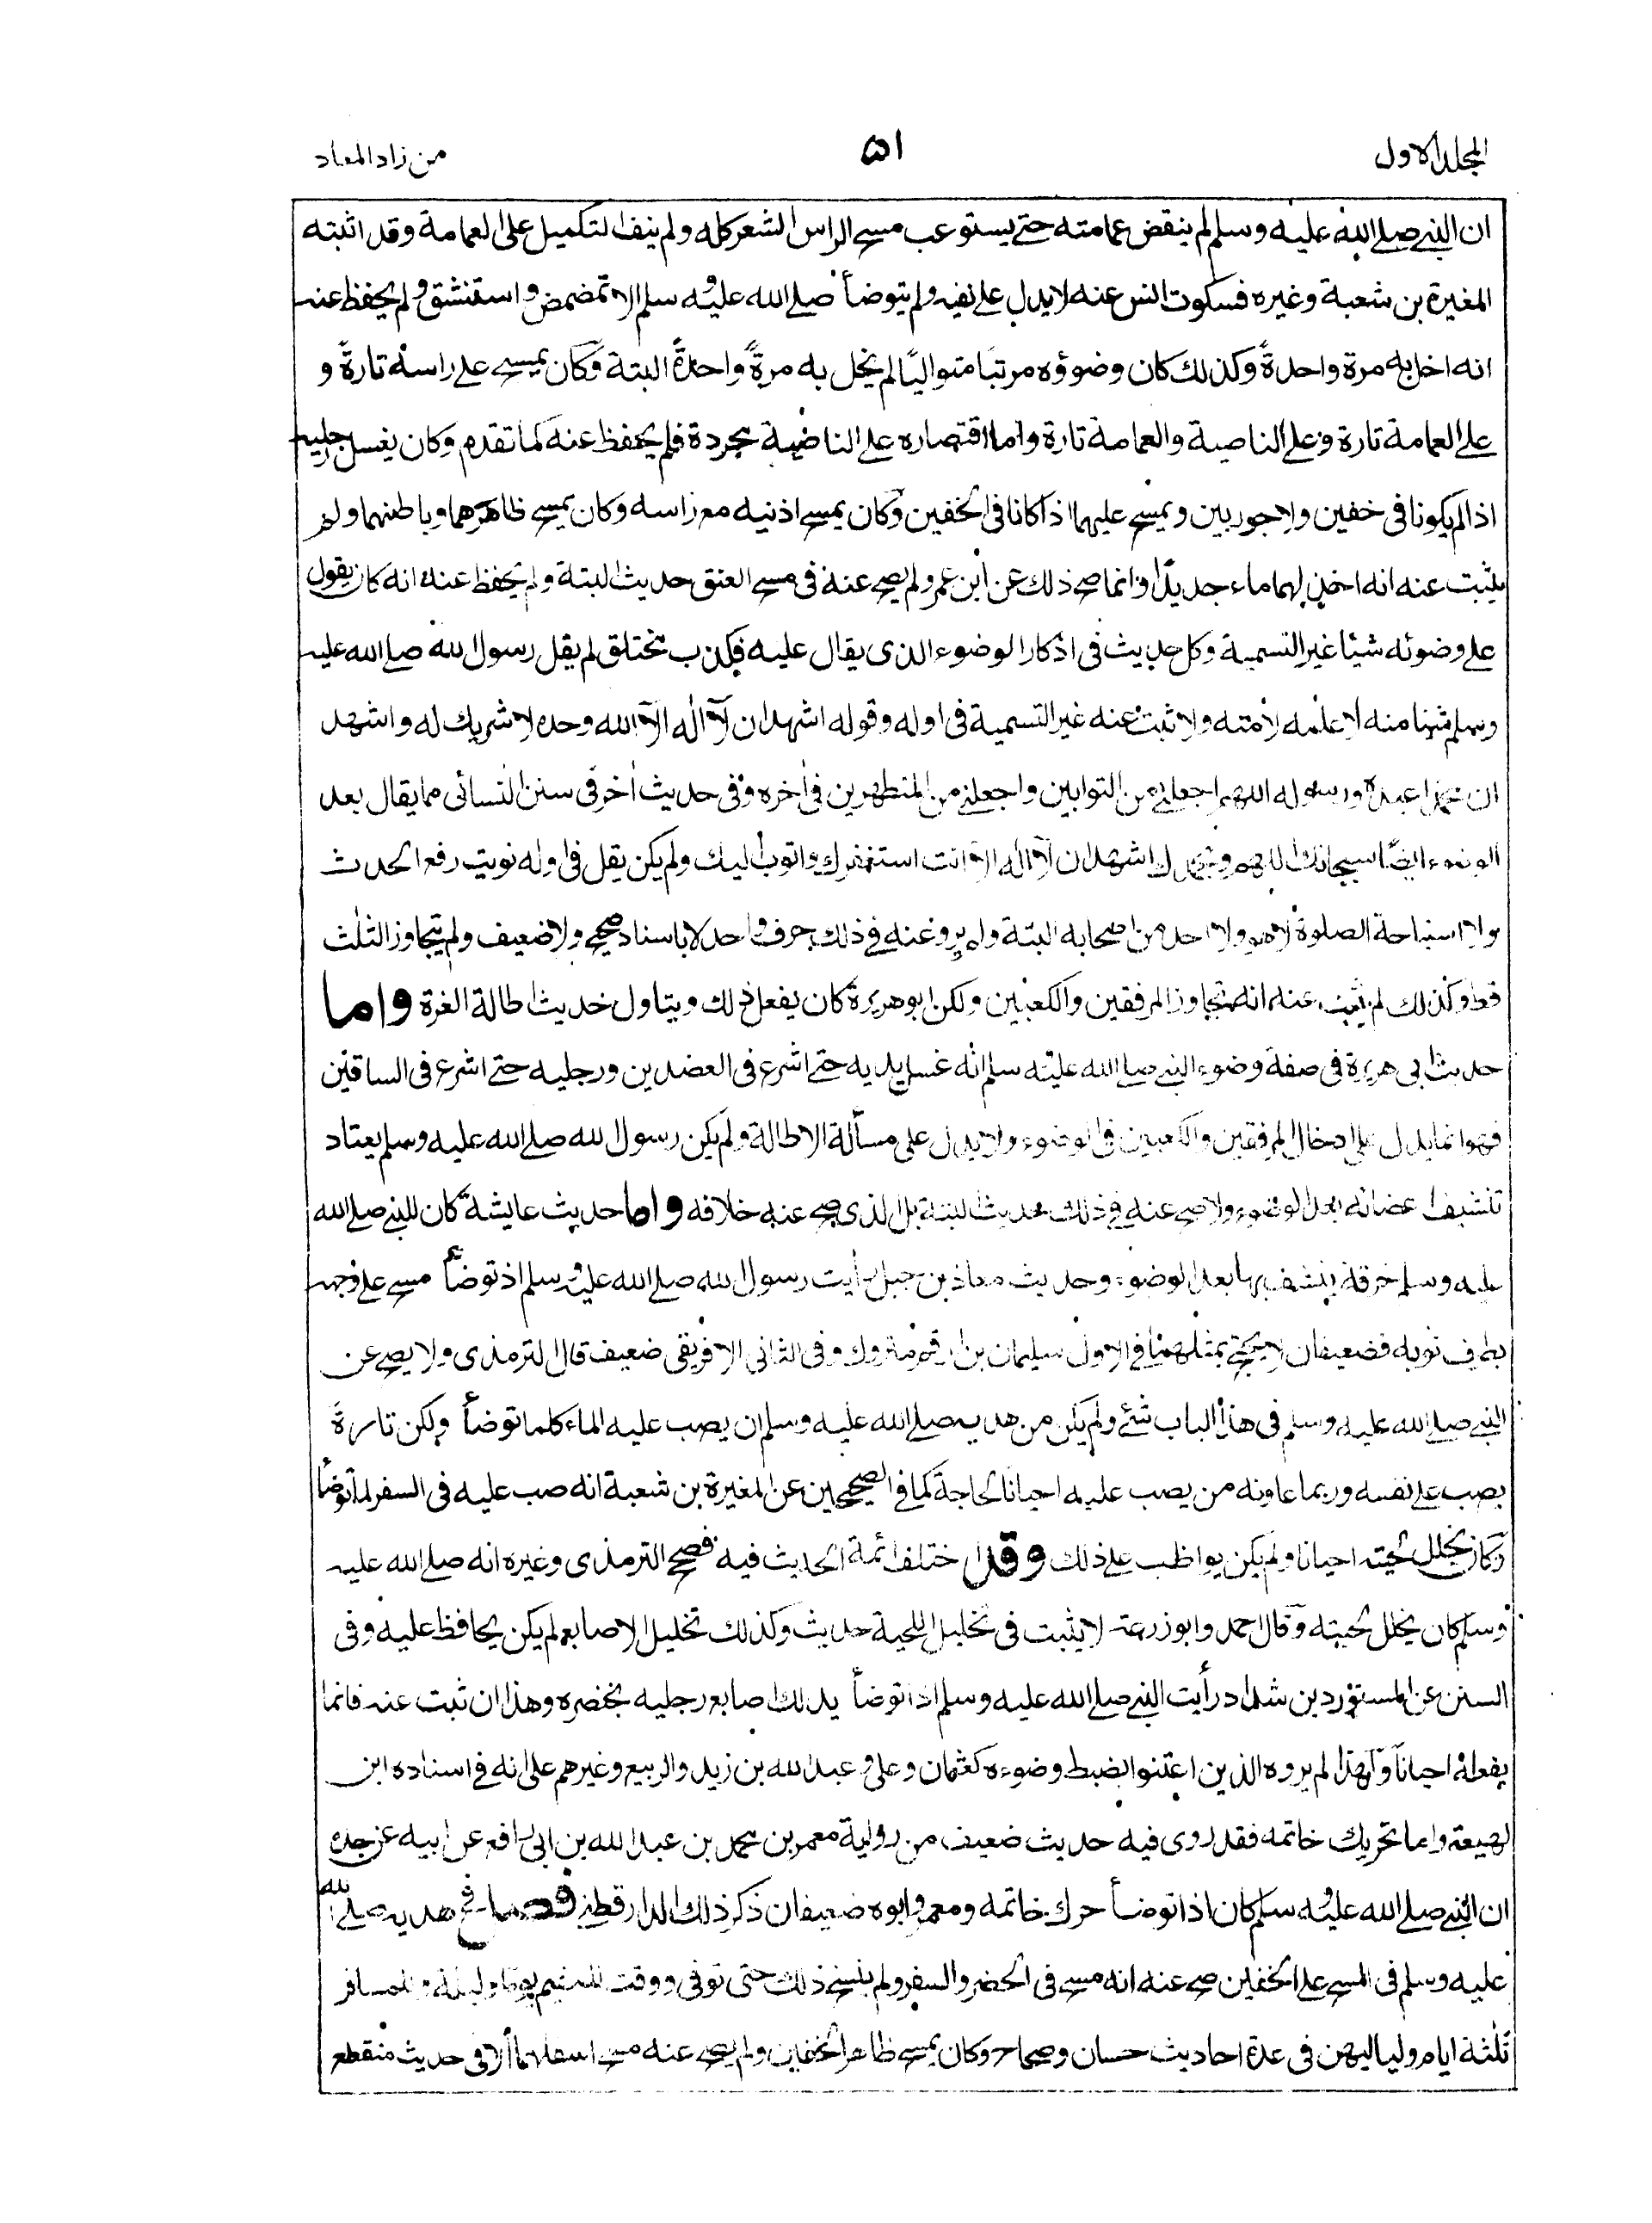 المجلد الاول
٥١
من زاد المعاد
ان النبي صلے الله عليه وسلم لم ينقض عمامته حتے يستوعب مسح الراس الشعر كله ولم ينف التكميل على العمامة وقد اثبته
المغيرة بن شعبة وغيره فسكوت انس عنه لا يدل علے نفيه ولم يتوضأ صلے الله عليه وسلم الا تمضمض واستنشق ولم يحفظ عنه
انه اخل به مرة واحدةً وكذلك كان وضوؤه مرتبًا متواليًا لم يخل به مرةً واحدةً البتة وكان يمسح علے راسه تارةً و
علے العمامة تارة وعلے الناصية والعمامة تارة واما اقتصاره علے الناصية مجردة فلم يحفظ عنه كما تقدم وكان يغسل رجليه
اذا لم يكونا فى خفين ولا جوربين ويمسح عليهما اذا كانا فى الخفين وكان يمسح اذنيه مع راسه وكان يمسح ظاهرهما وباطنهما ولم
يثبت عنه انه اخذ لهما ماء جديدًا وانما صح ذلك عن ابن عمر ولم يصح عنه فى مسح العنق حديث البتة ولم يحفظ عنه انه كان يقول
علے وضوئه شيئا غير التسمية وكل حديث فى اذكار الوضوء الذى يقال عليه فكذب مختلق لم يقل رسول الله صلے الله عليه
وسلم شيئا منه ولا علمه لامته ولا ثبت عنه غير التسمية فى اوله وقوله اشهد ان لآ اله الآ الله وحده لا شريك له واشهد
ان محمدا عبده ورسوله اللهم اجعلنے من التوابين واجعلنے من المتطهرين فى اٰخره وفى حديث اٰخر فى سنن النسائى مما يقال بعد
الوضوء ايضًا سبحانك اللهم وبحمدك اشهد ان لآ اله الآ انت استغفرك واتوب اليك ولم يكن يقل فى اوله نويت رفع الحدث
ولا استباحة الصلوة لا هو ولا احد من اصحابه البتة ولم يرو عنه فے ذلك حرف واحد لا باسناد صحيح ولا ضعيف ولم يتجاوز الثلٰث
قط وكذلك لم يثبت عنه انه تجاوز المرفقين والكعبين ولكن ابو هريرة كان يفعل ذلك ويتاول حديث اطالة الغرة واما
حديث ابى هريرة فى صفة وضوء النبے صلے الله عليه وسلم انه غسل يديه حتے اشرع فى العضدين ورجليه حتے اشرع فى الساقين
فهو انما يدل على ادخال المرفقين والكعبين فى الوضوء ولا يدل على مسألة الاطالة ولم يكن رسول الله صلے الله عليه وسلم يعتاد
تنشيف اعضائه بعد الوضوء ولا صح عنه فے ذلك حديث البتة بل الذى صح عنه خلافه واما حديث عايشة كان للنبے صلے الله
عليه وسلم خرقة ينشف بها بعد الوضوء وحديث معاذ بن جبل رأيت رسول الله صلے الله عليه وسلم اذا توضأ مسح علے وجهه
بطرف ثوبه فضعيفان لا يحتج بمثلهما فى الاول سليمان بن ارقم متروك وفى الثانى الافريقى ضعيف قال الترمذى ولا يصح عن
النبے صلے الله عليه وسلم فى هذا الباب شئ ولم يكن من هديه صلے الله عليه وسلم ان يصب عليه الماء كلما توضأ ولكن تارةً
يصب علے نفسه وربما عاونه من يصب عليه احيانا لحاجة كما فى الصحيحين عن المغيرة بن شعبة انه صب عليه فى السفر لما توضأ
وكان يخلل لحيته احيانا ولم يكن يواظب علے ذلك وقد اختلف ائمة الحديث فيه فصحح الترمذى وغيره انه صلے الله عليه
وسلم كان يخلل لحيته وقال احمد وابو زرعة لا يثبت فى تخليل اللحية حديث وكذلك تخليل الاصابع لم يكن يحافظ عليه وفى
السنن عن المستورد بن شداد رأيت النبے صلے الله عليه وسلم اذا توضأ يدلك اصابع رجليه بخنصره وهذا ان ثبت عنه فانما
يفعله احيانًا ولهذا لم يروه الذين اعتنوا بضبط وضوءه كعثمان وعلى وعبد الله بن زيد والربيع وغيرهم على انه فے اسناده ابن
لهيعة واما تحريك خاتمه فقد روى فيه حديث ضعيف من رواية معمر بن محمد بن عبد الله بن ابى رافع عن ابيه عن جده
ان النبے صلے الله عليه وسلم كان اذا توضأ حرك خاتمه ومعمر وابوه ضعيفان ذكر ذلك الدارقطنے فصل فى هديه صلے الله
عليه وسلم فى المسح علے الخفين صح عنه انه مسح فى الحضر والسفر ولم ينسخ ذلك حتى توفى ووقت للمقيم يوما وليلة وللمسافر
ثلٰثة ايام ولياليهن فى عدة احاديث حسان وصحاح وكان يمسح ظاهر الخفين ولم يصح عنه مسح اسفلهما الا فى حديث منقطع